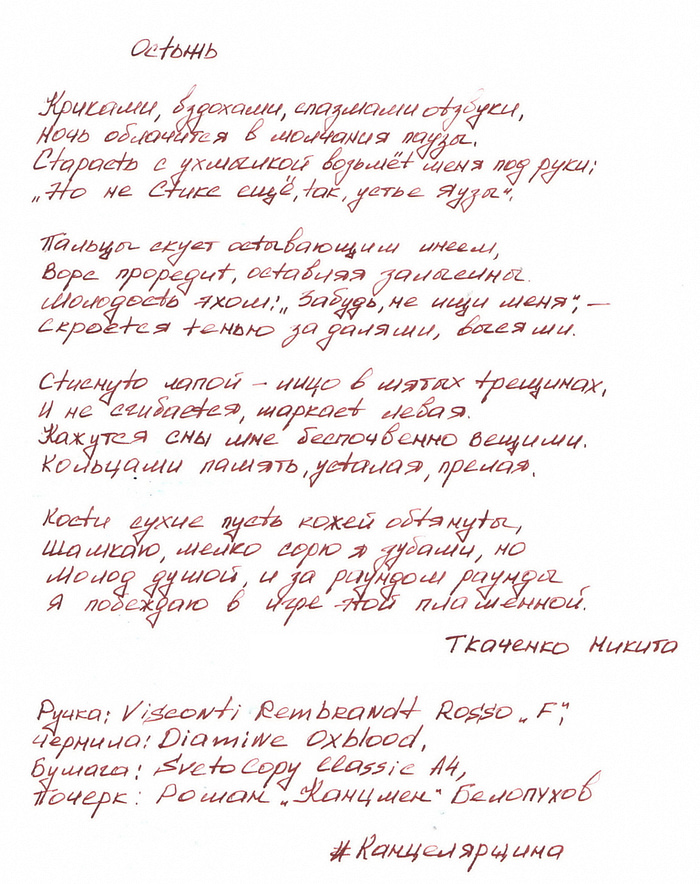 Остынь
Криками, вздохами, спазмами отзвуки,
Ночь облачится в молчания паузы.
Старость с ухмылкой возьмёт меня под руки:
„Но не Стикс ещё, так, устье Яузы“.
Пальцы скует остывающим инеем,
Ворс проредит, оставляя залысины.
Молодость эхом: „Забудь, не ищи меня“, —
Скроется тенью за далями, высями.
Стиснуто лапой – лицо в мятых трещинах,
И не сгибается, шаркает левая.
Кажутся сны мне беспочвенно вещими.
Кольцами память, усталая, прелая.
Кости сухие пусть кожей обтянуты,
Шамкаю, мелко сорю я зубами, но
Молод душой, и за раундом раунды
Я побеждаю в игре той пламенной.
Ткаченко Никита
Ручка: Visconti Rembrandt Rosso „F“,
Чернила: Diamine Oxblood,
Бумага: SvetoCopy Classic A4,
Почерк: Роман „Канцмен“ Белопухов
#Канцелярщина